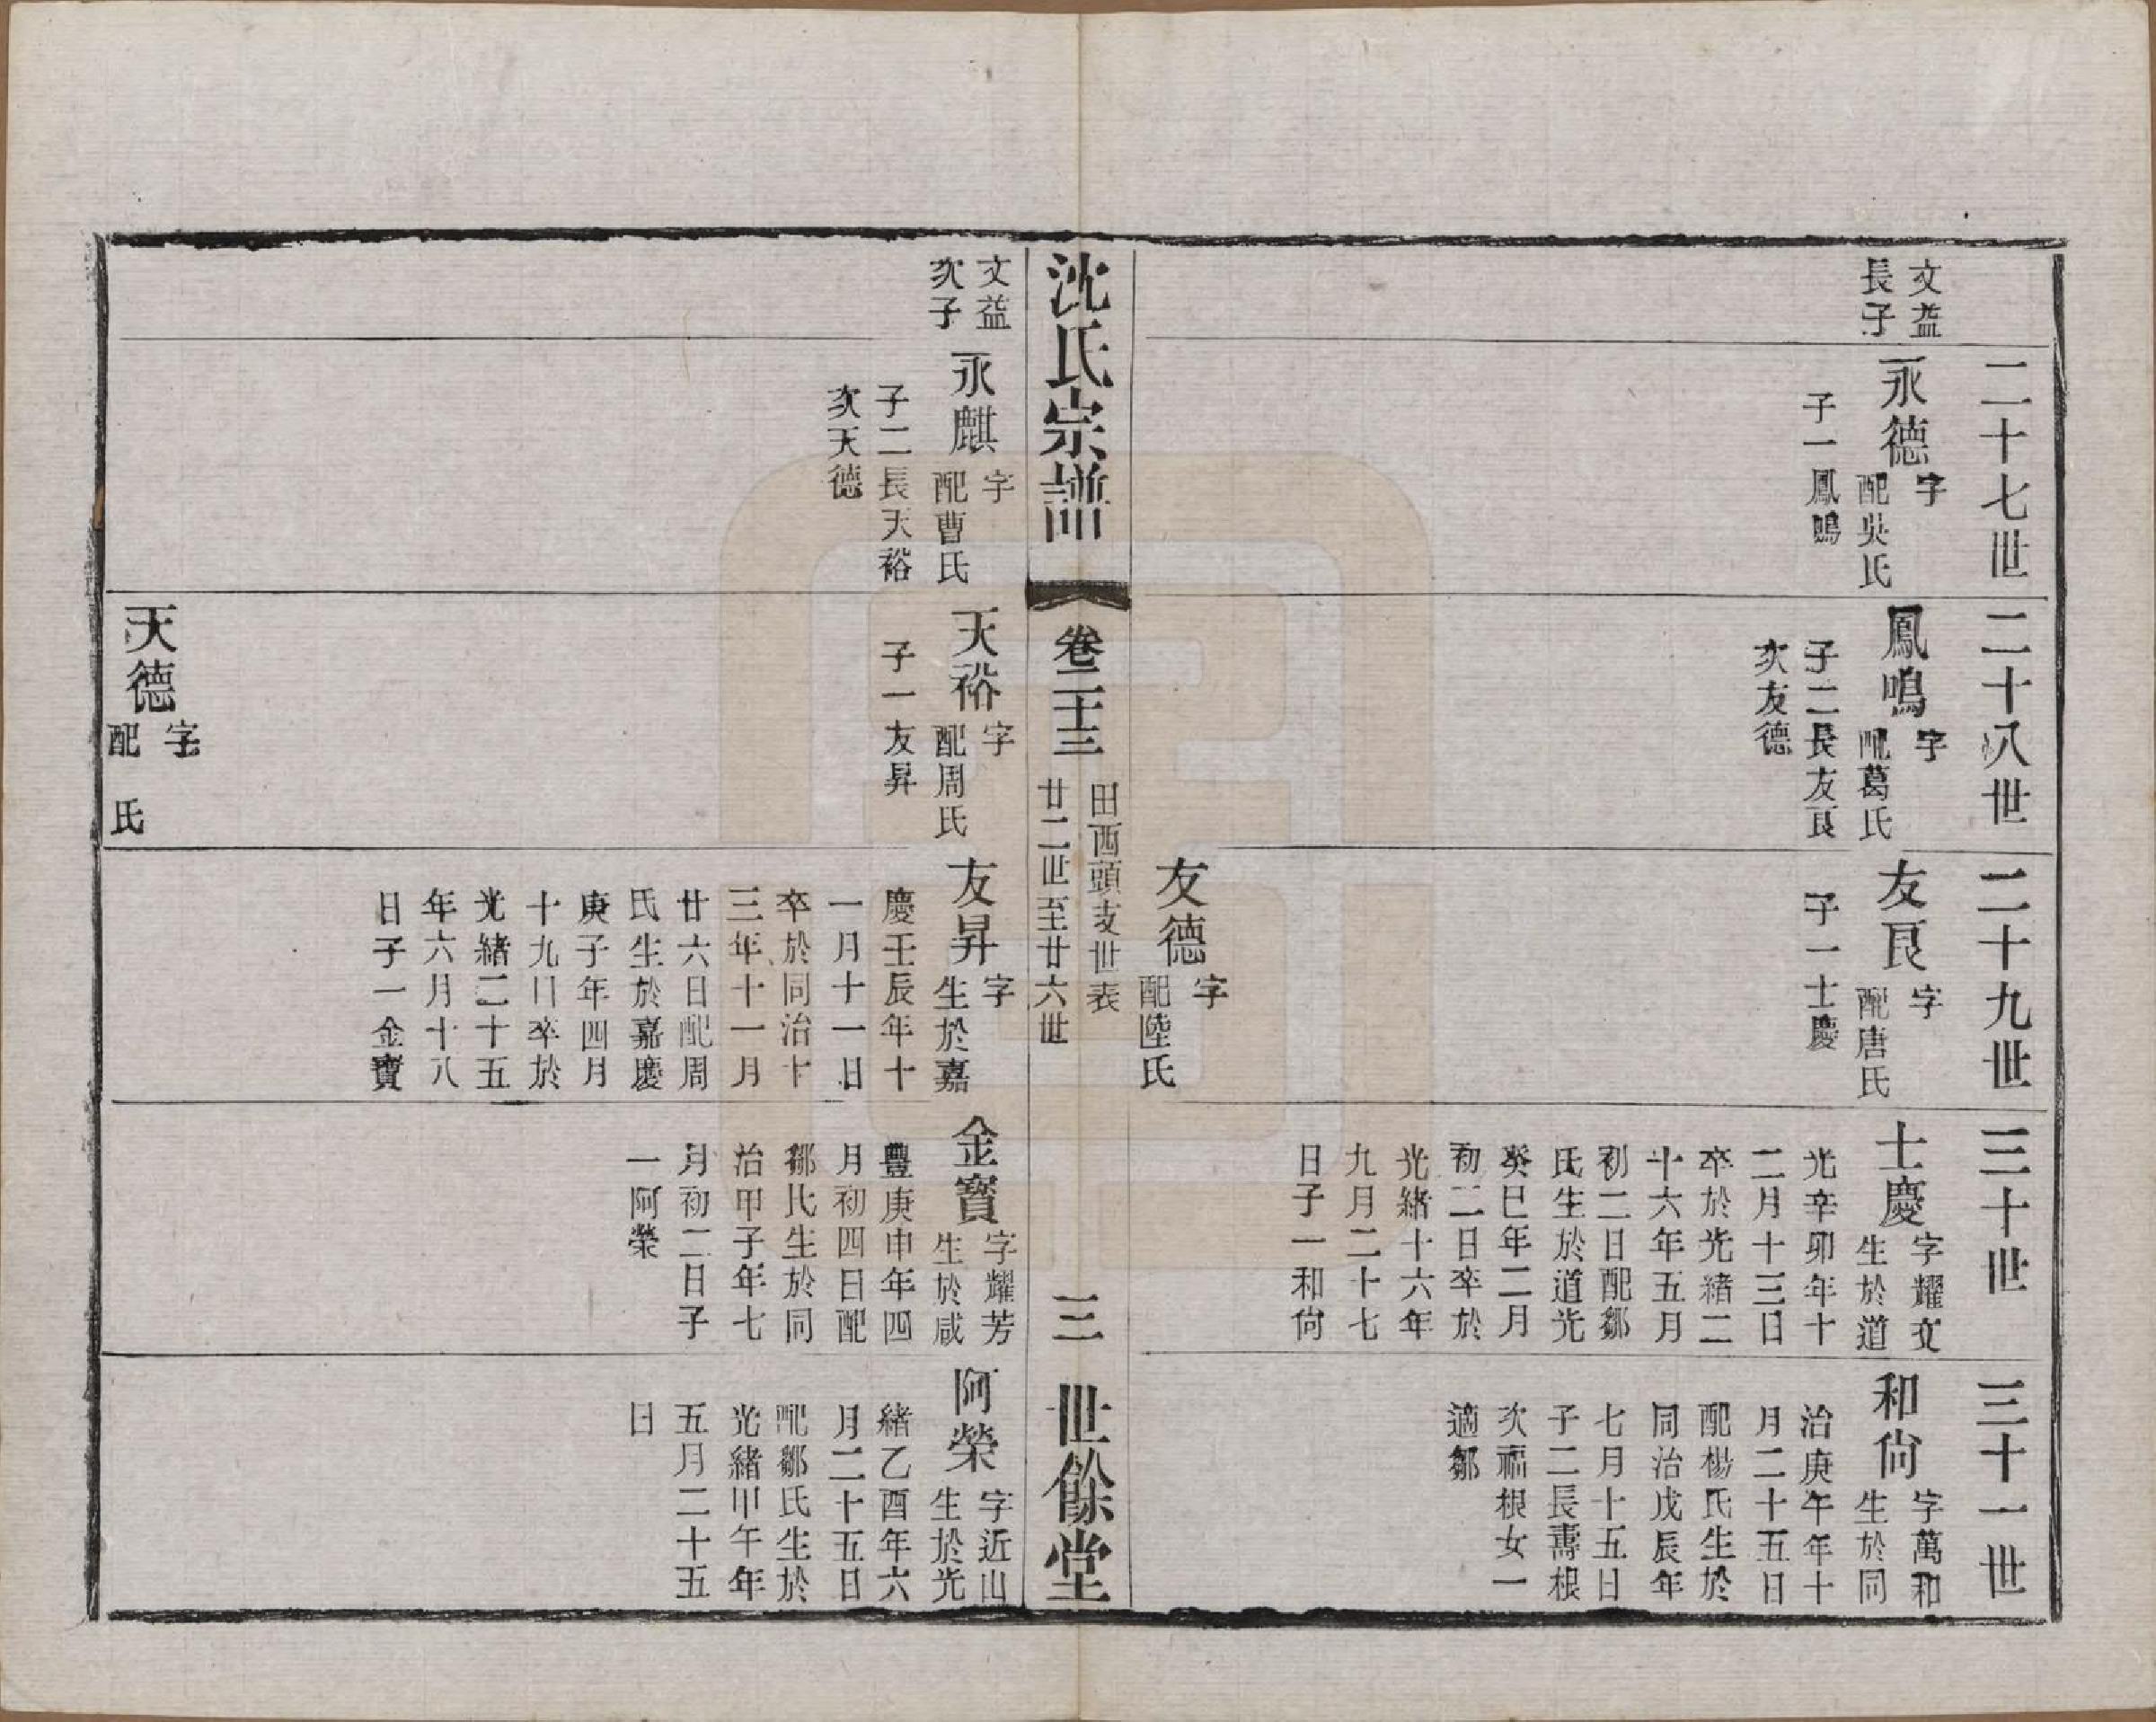 二十七世
文益
長子
永德
字
配吳氏
子一鳳鳴
二十八世
鳳鳴
字
配葛氏
子二長友良
次友德
二十九世
友良
字
配唐氏
子一士慶
友德
字
配陸氏
三十世
士慶
字耀文
生於道
光辛卯年十
二月十三日
卒於光緒二
十六年五月
初二日配鄒
氏生於道光
癸巳年二月
初二日卒於
光緒十六年
九月二十七
日子一和尙
三十一世
和尙
字萬和
生於同
治庚午年十
月二十五日
配楊氏生於
同治戊辰年
七月十五日
子二長壽根
次福根女一
適鄒
沈氏宗譜
卷二十三
田西頭支世表
廿二世至廿六世
三
世餘堂
文益
次子
永麒
字
配曹氏
子二長天裕
次天德
天裕
字
配周氏
子一友昇
天德
字
配 氏
友昇
字
生於嘉
慶壬辰年十
一月十一日
卒於同治十
三年十一月
廿六日配周
氏生於嘉慶
庚子年四月
十九日卒於
光緒二十五
年六月十八
日子一金寶
金寶
字耀芳
生於咸
豐庚申年四
月初四日配
鄒氏生於同
治甲子年七
月初二日子
一阿榮
阿榮
字近山
生於光
緒乙酉年六
月二十五日
配鄒氏生於
光緒甲午年
五月二十五
日